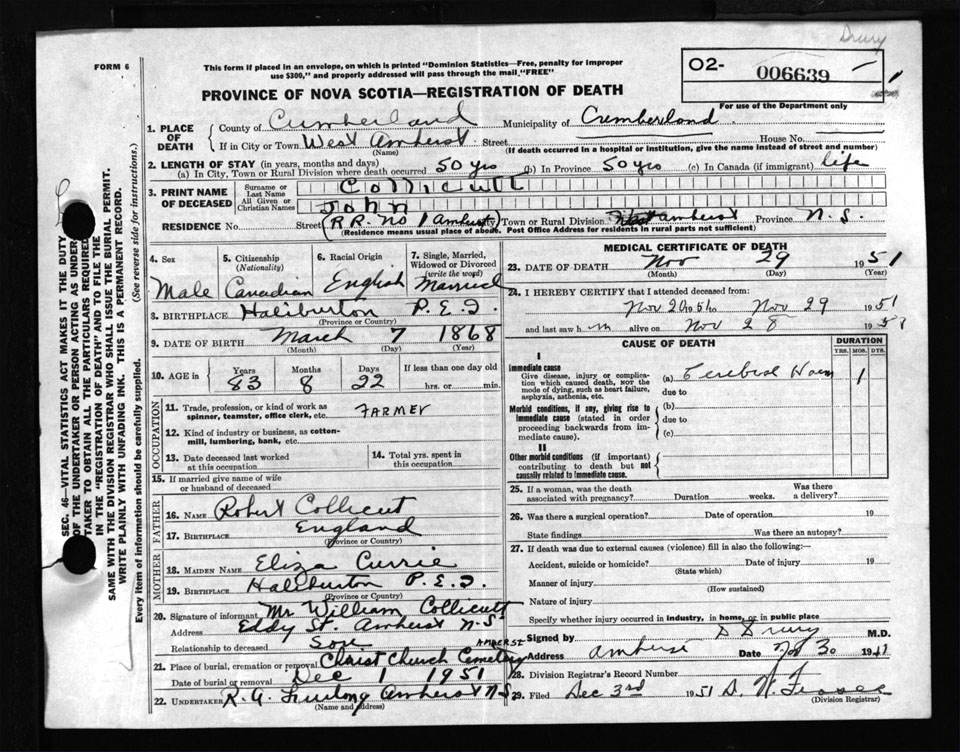 Drury
FORM 6
This form if placed in an envelope, on which is printed "Dominion Statistics—Free, penalty for improper
use $300," and properly addressed will pass through the mail "FREE"
O2- 006639 — 1
For use of the Department only
PROVINCE OF NOVA SCOTIA—REGISTRATION OF DEATH
1. PLACE OF DEATH
County of Cumberland Municipality of Cumberland
If in City or Town West Amherst Street House No.
(Name) (If death occurred in a hospital or institution, give the name instead of street and number)
2. LENGTH OF STAY (in years, months and days)
(a) In City, Town or Rural Division where death occurred 50 yrs (b) In Province 50 yrs (c) In Canada (if immigrant) life
3. PRINT NAME OF DECEASED
Surname or Last Name Collicutt
All Given or Christian Names John
RESIDENCE No. Street (R.R. No 1 Amherst) Town or Rural Division West Amherst Province N.S.
(Residence means usual place of abode. Post Office Address for residents in rural parts not sufficient)
4. Sex
Male
5. Citizenship
(Nationality)
Canadian
6. Racial Origin
English
7. Single, Married,
Widowed or Divorced
(write the word)
Married
8. BIRTHPLACE Haliburton P.E.I.
(Province or Country)
9. DATE OF BIRTH March 7 1868
(Month) (Day) (Year)
10. AGE in Years 83 Months 8 Days 22 If less than one day old
hrs. or min.
OCCUPATION
11. Trade, profession, or kind of work as
spinner, teamster, office clerk, etc. FARMER
12. Kind of industry or business, as cotton-
mill, lumbering, bank, etc.
13. Date deceased last worked
at this occupation
14. Total yrs. spent in
this occupation
15. If married give name of wife
or husband of deceased
FATHER
16. NAME Robert Collicut
17. BIRTHPLACE England
(Province or Country)
MOTHER
18. MAIDEN NAME Eliza Currie
19. BIRTHPLACE Haliburton P.E.I.
(Province or Country)
20. Signature of informant Mr William Collicutt
Address Eddy St. Amherst N.S.
Relationship to deceased Son
21. Place of burial, cremation or removal Christ Church Cemetery AMHERST
Date of burial or removal Dec 1 1951
22. UNDERTAKER R. A. Furlong Amherst N.S.
(Name and address)
MEDICAL CERTIFICATE OF DEATH
23. DATE OF DEATH Nov 29 1951
(Month) (Day) (Year)
24. I HEREBY CERTIFY that I attended deceased from:
Nov 20 51 to Nov 29 1951
and last saw him alive on Nov 28 1951
CAUSE OF DEATH
DURATION
YRS. MOS. DYS.
I
Immediate cause
Give disease, injury or complica-
tion which caused death, NOT the
mode of dying, such as heart failure,
asphyxia, asthenia, etc.
(a) Cerebral Haem 1
due to
Morbid conditions, if any, giving rise to
immediate cause (stated in order
proceeding backwards from im-
mediate cause).
(b)
due to
(c)
II
Other morbid conditions (if important)
contributing to death but not
causally related to immediate cause.
25. If a woman, was the death
associated with pregnancy? Duration weeks. Was there
a delivery?
26. Was there a surgical operation? Date of operation 19
State findings Was there an autopsy?
27. If death was due to external causes (violence) fill in also the following:—
Accident, suicide or homicide? Date of injury 19
(State which)
Manner of injury
(How sustained)
Nature of injury
Specify whether injury occurred in industry, in home, or in public place
Signed by D Drury M.D.
Address Amherst Date Nov 30 1951
28. Division Registrar's Record Number
29. Filed Dec 3rd 1951
(Division Registrar)
SEC. 46—VITAL STATISTICS ACT MAKES IT THE DUTY
OF THE UNDERTAKER OR PERSON ACTING AS UNDER-
TAKER TO OBTAIN ALL THE PARTICULARS REQUIRED
IN THE "REGISTRATION OF DEATH" AND TO FILE THE
SAME WITH THE DIVISION REGISTRAR WHO SHALL ISSUE THE BURIAL PERMIT.
WRITE PLAINLY WITH UNFADING INK. THIS IS A PERMANENT RECORD.
Every item of information should be carefully supplied. (See reverse side for instructions.)